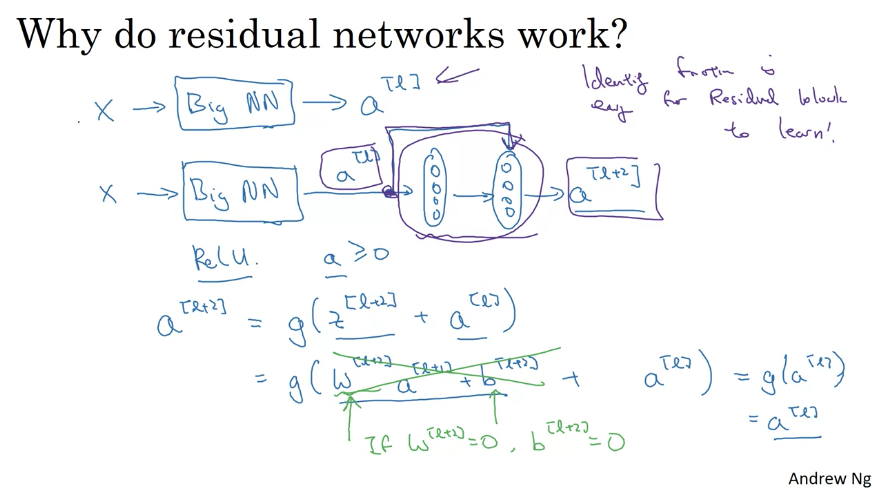 Why do residual networks work?
X → Big NN → a^[l]
Identity function is
easy for Residual block
to learn!
X → Big NN → a^[l] → a^[l+2]
ReLU. a ≥ 0
a^[l+2] = g(z^[l+2] + a^[l])
= g(W^[l+2] a^[l+1] + b^[l+2] + a^[l]) = g(a^[l])
= a^[l]
If W^[l+2] = 0, b^[l+2] = 0
Andrew Ng